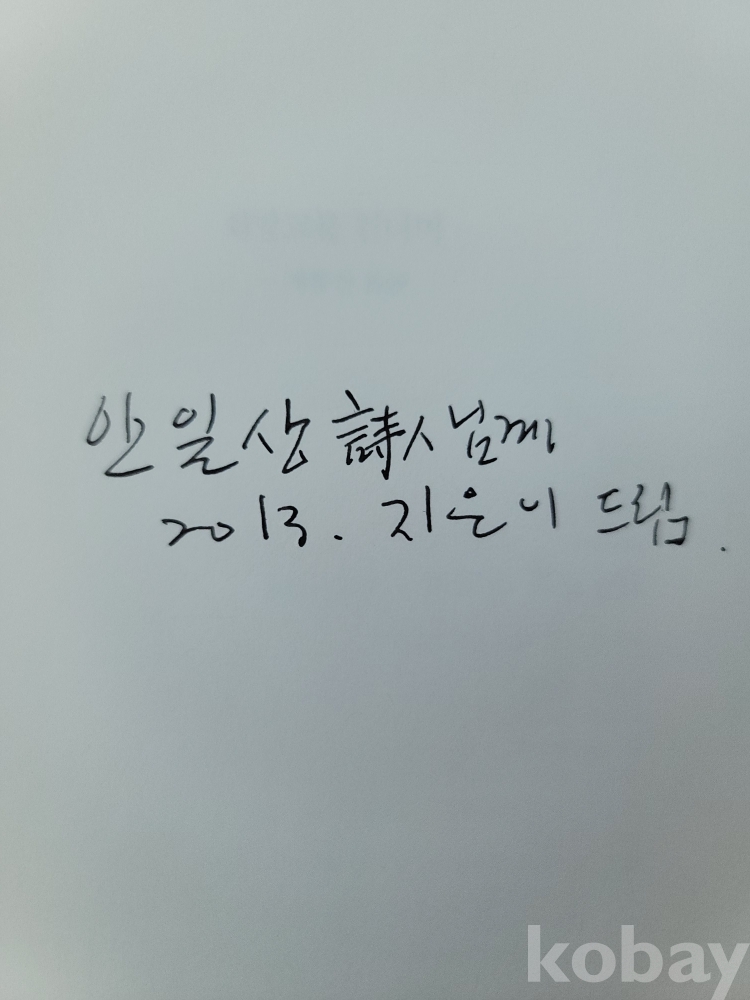 안일상 詩人님께
2013. 지은이 드림.
kobay